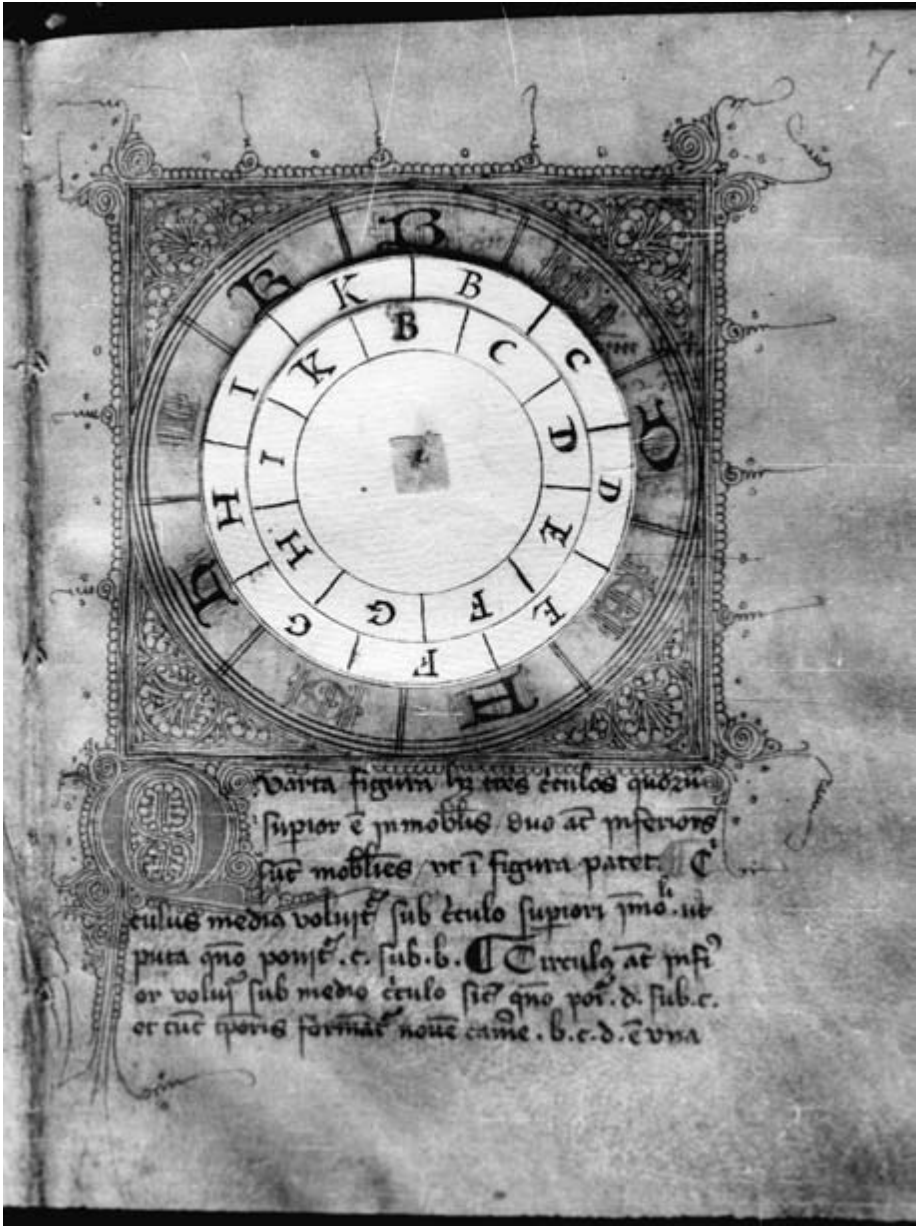 7
B
D
H
K
B
C
D
E
F
G
H
I
K
B
C
D
E
F
G
H
I
K
Quarta figura hȝ tres c̓culos quorū
supior ē inmobl̓is duo at̄ inferiores
sūt mobl̓ies ut ī figura patet. Ci
culus medio voluit̓ sub c̓culo supiori īmo.li ut
puta qn̄o ponit̓ .c. sub .b. ¶ Circulus at̄ infi
or voluit̓ sub medio c̓culo sic̄ qn̄o poīt̓ .d. sub .c.
et tūc tp̄oris formāt̓ nouē cam̄e .b.c.d. ē una